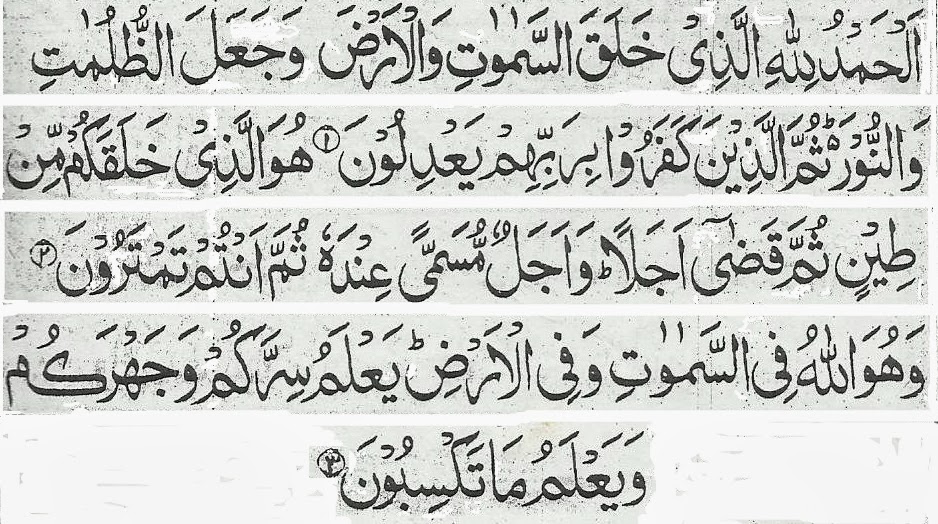 اَلْحَمْدُ لِلّٰهِ الَّذِیْ خَلَقَ السَّمٰوٰتِ وَالْاَرْضَ وَجَعَلَ الظُّلُمٰتِ
وَالنُّوْرَ ۬ؕ ثُمَّ الَّذِیْنَ كَفَرُوْا بِرَبِّهِمْ یَعْدِلُوْنَ ۝۱ هُوَ الَّذِیْ خَلَقَكُمْ مِّنْ
طِیْنٍ ثُمَّ قَضٰۤی اَجَلًا ؕ وَاَجَلٌ مُّسَمًّی عِنْدَهٗ ثُمَّ اَنْتُمْ تَمْتَرُوْنَ ۝۲
وَهُوَ اللّٰهُ فِی السَّمٰوٰتِ وَفِی الْاَرْضِ ؕ یَعْلَمُ سِرَّكُمْ وَجَهْرَكُمْ
وَیَعْلَمُ مَا تَكْسِبُوْنَ ۝۳